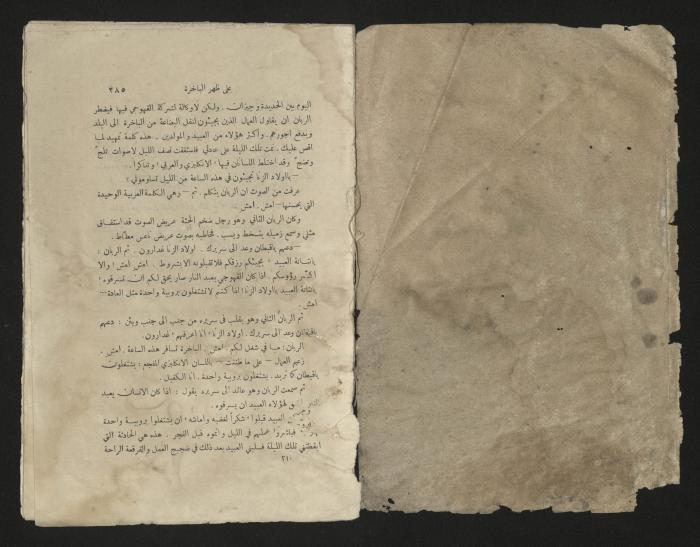 على ظهر الباخرة ٣٨٥
اليوم بين الحديدة وجيزان . ولكن لا وكالة لشركة القهوجي فيها فيضطر
الربان ان يقاول العمال الذين يجيئون لنقل البضاعة من الباخرة الى البلد
ويدفع اجورهم . وأكثر هؤلاء من العبيد والمولدين . هذه كلمة تمهيد لما
اقص عليك . نمت تلك الليلة على عادتي فاستفقت نصف الليل لاصوات تلج
وتضج وقد اختلط اللسانان فيها ، الانكليزي والعربي ، وتنافرا .
— يا اولاد الزنا تجيئون في هذه الساعة من الليل تساومونني ؟
عرفت من الصوت ان الربان يتكلم . ثم — وهي الكلمة العربية الوحيدة
التي يحسنها — امش . امش
وكان الربان الثاني وهو رجل ضخم الجثة عريض الصوت قد استفاق
مثلي وسمع زميله يتسخط ويسب . فخاطبه بصوت عريض ناعس مطّاط .
— دعهم ياقبطان وعد الى سريرك . اولاد الزنا غدارون . ثم الربان :
يانتانة العبيد ، يجيئكم رزقكم فلا تقبلونه الا بشروط . امش امش ! والا
اكسر رؤوسكم . اذا كان القهوجي يعبد النار صار يحق لكم ان تسرقوه ؟
يانتانة العبيد يا اولاد الزنا ! اذا كنتم لا تشتغلون بروبية واحدة مثل العادة —
امش
ثم الربان الثاني وهو يقلب في سريره من جنب الى جنب ويئن : دعهم
ياقبطان وعد الى سريرك . اولاد الزنا ، انا اعرفهم ، غدارون .
الربان : ما في شغل لكم . امش . الباخرة تسافر هذه الساعة . امش .
زعيم العمال — على ما ظننت — باللسان الانكليزي المفجع : يشتغلون
ياقبطان كما تريد . يشتغلون بروبية واحدة . انا الكفيل .
ثم سمعت الربان وهو عائد الى سريره يقول : اذا كان الانسان يعبد
النار يحق لهؤلاء العبيد ان يسرقوه .
العبيد قبلوا ، شكراً لغضبه وامانته ، ان يشتغلوا بروبية واحدة
فباشروا عملهم في الليل واتموه قبل الفجر . هذه هي الحادثة التي
ايقظتني تلك الليلة فسلبني العبيد بعد ذلك في ضجيج العمل والفرقعة الراحة
٢١